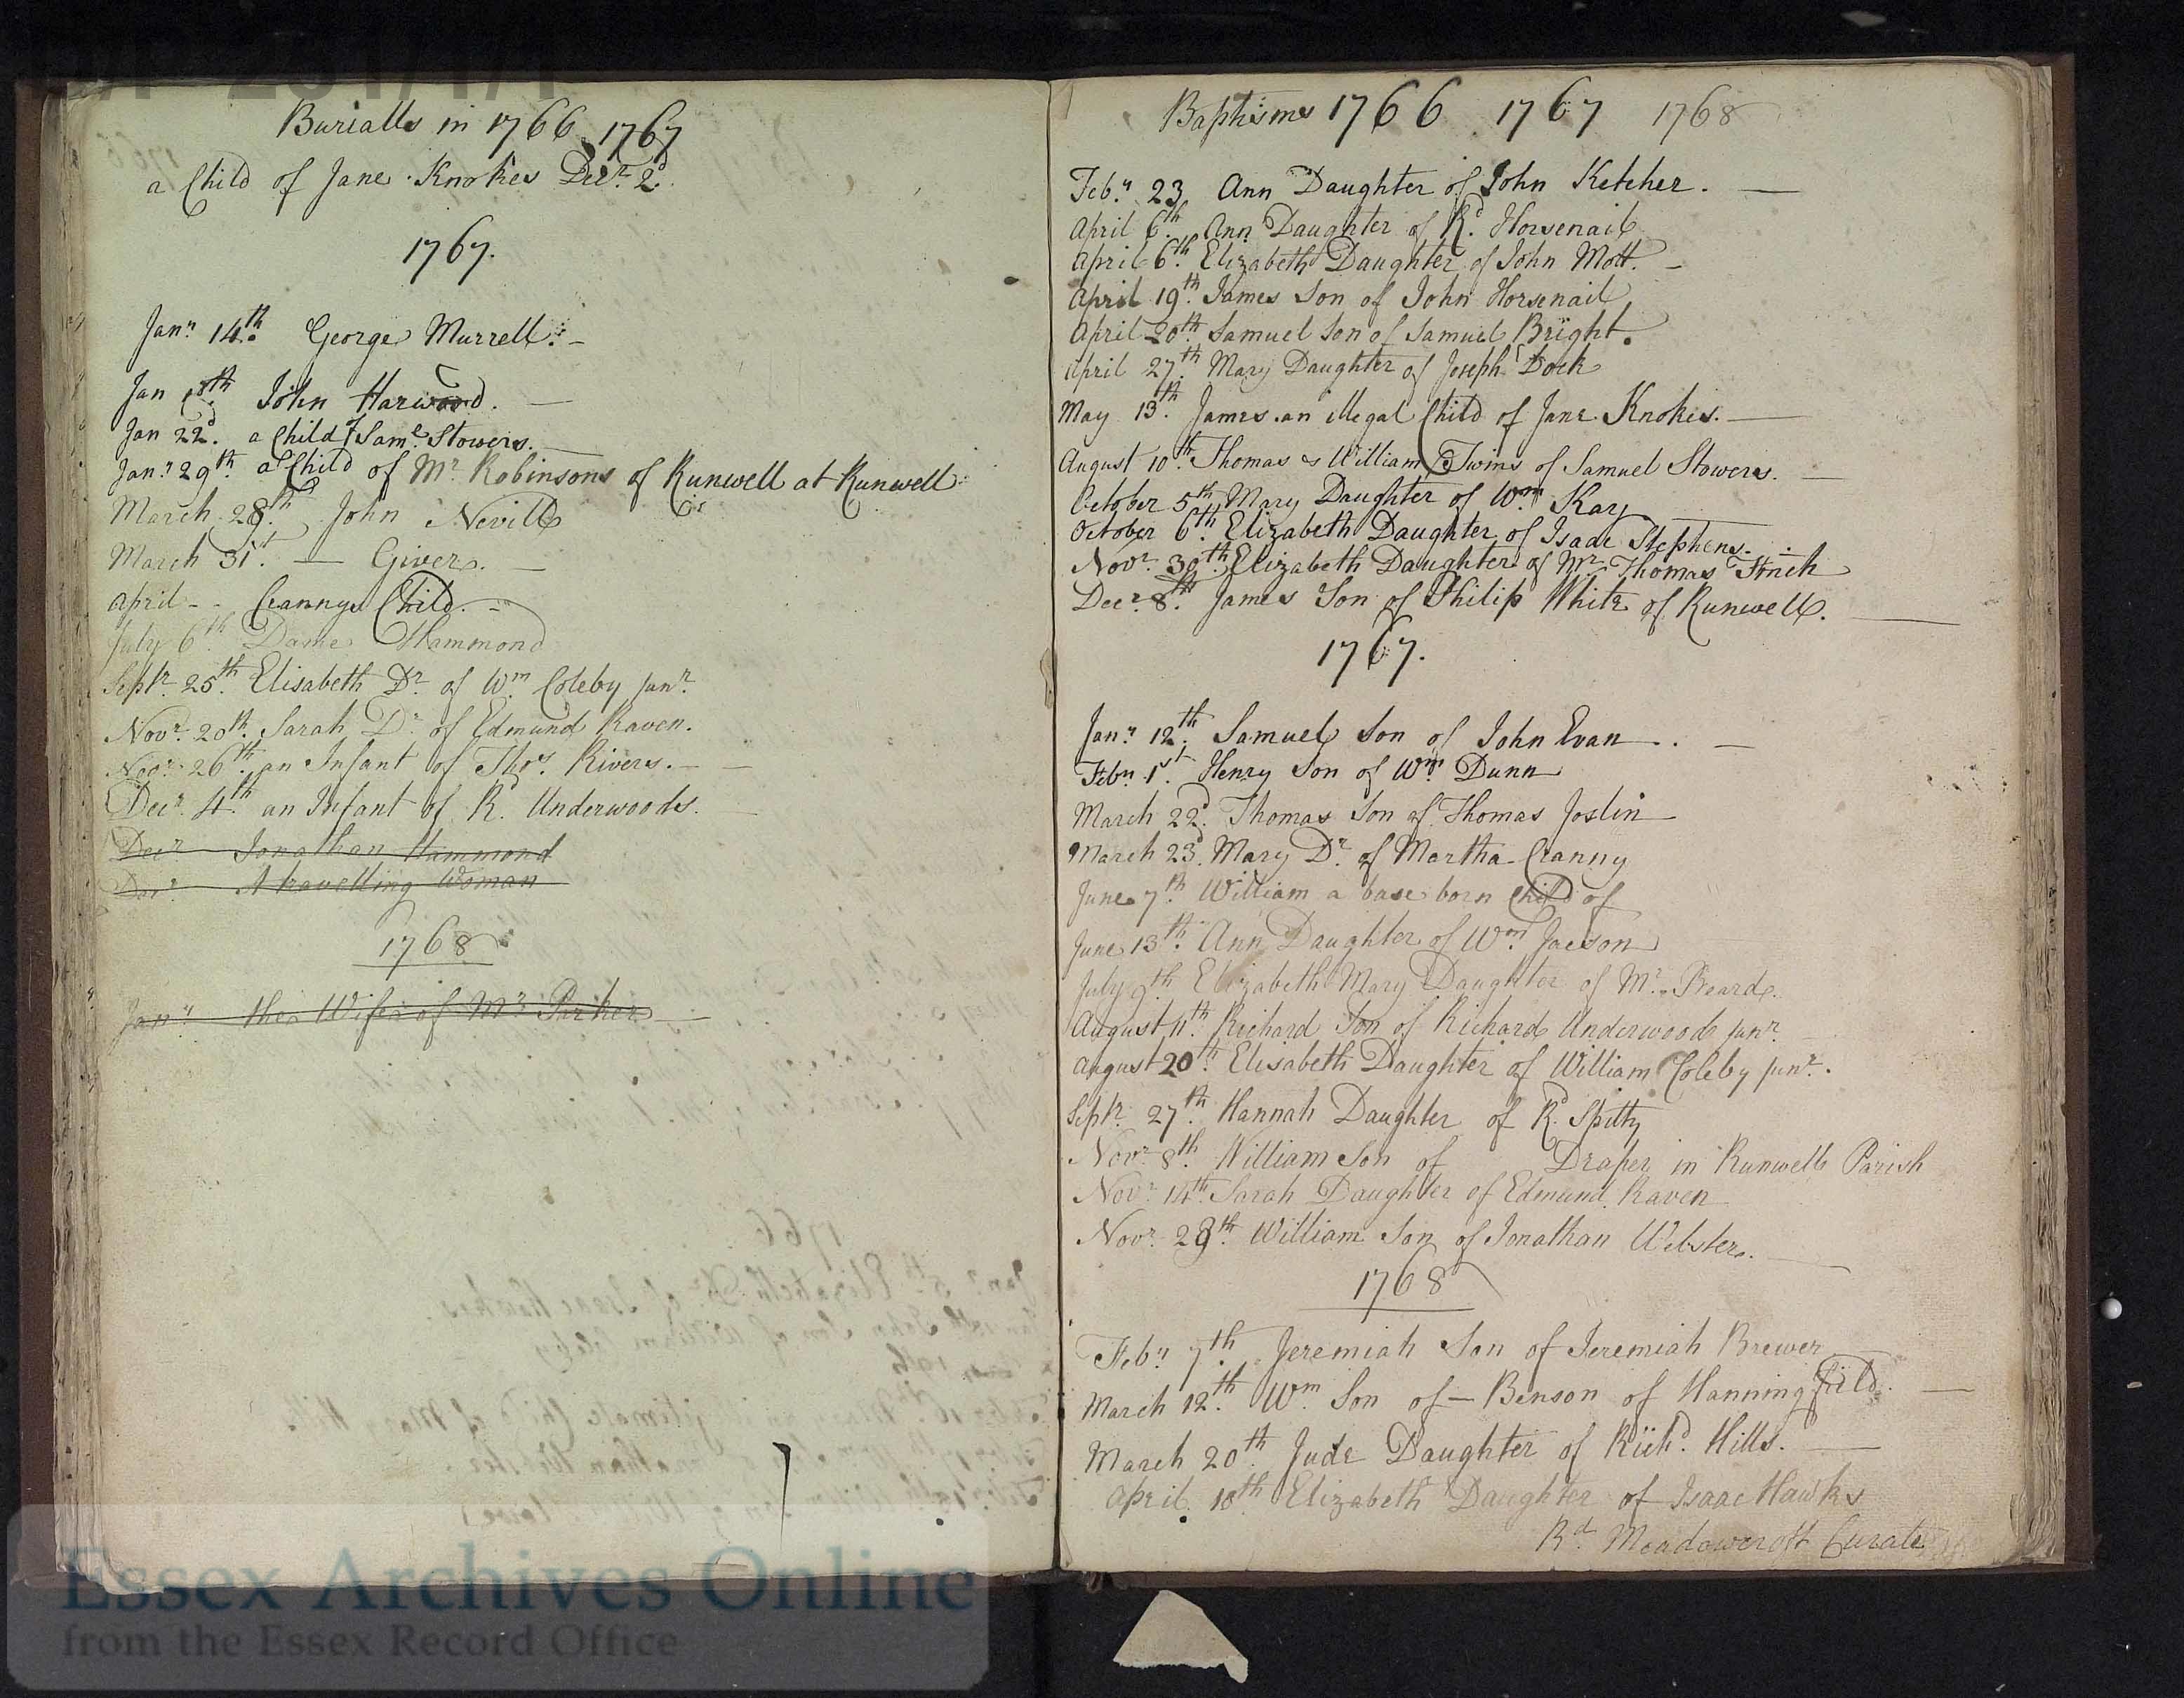 Burialls in 1766 1767
a Child of Jane Knokes Decr. 2d.
1767.
Janry 14th. George Murrell. -
Jan th. John Harwood. —
Jan 22d. a Child of Saml. Stowers. —
Janry 29th. a Child of Mr Robinsons of Runwell at Runwell
March 28th. John Nevill
March 31st. — Givers. —
April - - Crannys Child. -
July 6th. Dame Hammond
Septr. 25th. Elisabeth Dr of Wm. Coleby junr.
Novr. 20th. Sarah Dr of Edmund Raven.
Novr. 26th. an Infant of Thos. Rivers. — —
Decr. 4th. an Infant of Rd. Underwoods. —
Decr Jonathan Hammond
A travelling Woman
1768
Janry the Wife of Mr Parker —
Baptisms 1766 1767 1768
Febry 23 Ann Daughter of John Ketcher. —
April 6th. Ann Daughter of Rd. Horsenail
April 6th. Elizabeth Daughter of John Mott. —
April 19th. James Son of John Horsenail
April 20th. Samuel Son of Samuel Bright.
April 27th. Mary Daughter of Joseph Dock
May 13th. James an illegal Child of Jane Knokes. —
August 10th. Thomas & William Twins of Samuel Stowers. —
October 5th. Mary Daughter of Wm. Kay
October 6th. Elizabeth Daughter of Isaac Stephens.
Novr. 30th. Elizabeth Daughter of Mr. Thomas Finch
Decr. 8th. James Son of Philip White of Runwell. —
1767.
Janry 12th. Samuel Son of John Evan . —
Febry 1st. Henry Son of Wm. Dunn
March 22d. Thomas Son of Thomas Joslin
March 23d. Mary Dr. of Martha Cranny
June 7th. William a base born Child of
June 13th. Ann Daughter of Wm. Jacson
July 9th. Elizabeth Mary Daughter of Mr. Beard.
August 11th. Richard Son of Richard Underwood junr.
August 20th. Elisabeth Daughter of William Coleby junr.
Septr. 27th. Hannah Daughter of Rd. Spitty
Novr. 8th. William Son of Draper in Runwell Parish
Novr. 14th. Sarah Daughter of Edmund Raven
Novr. 29th. William Son of Jonathan Webster. —
1768
Febry 7th. Jeremiah Son of Jeremiah Brewer
March 12th. Wm. Son of — Benson of Hanningfield. —
March 20th. Jude Daughter of Richd. Hills. —
April 10th Elizabeth Daughter of Isaac Hawks
Rd. Meadowcroft Curate
Essex Archives Online
from the Essex Record Office